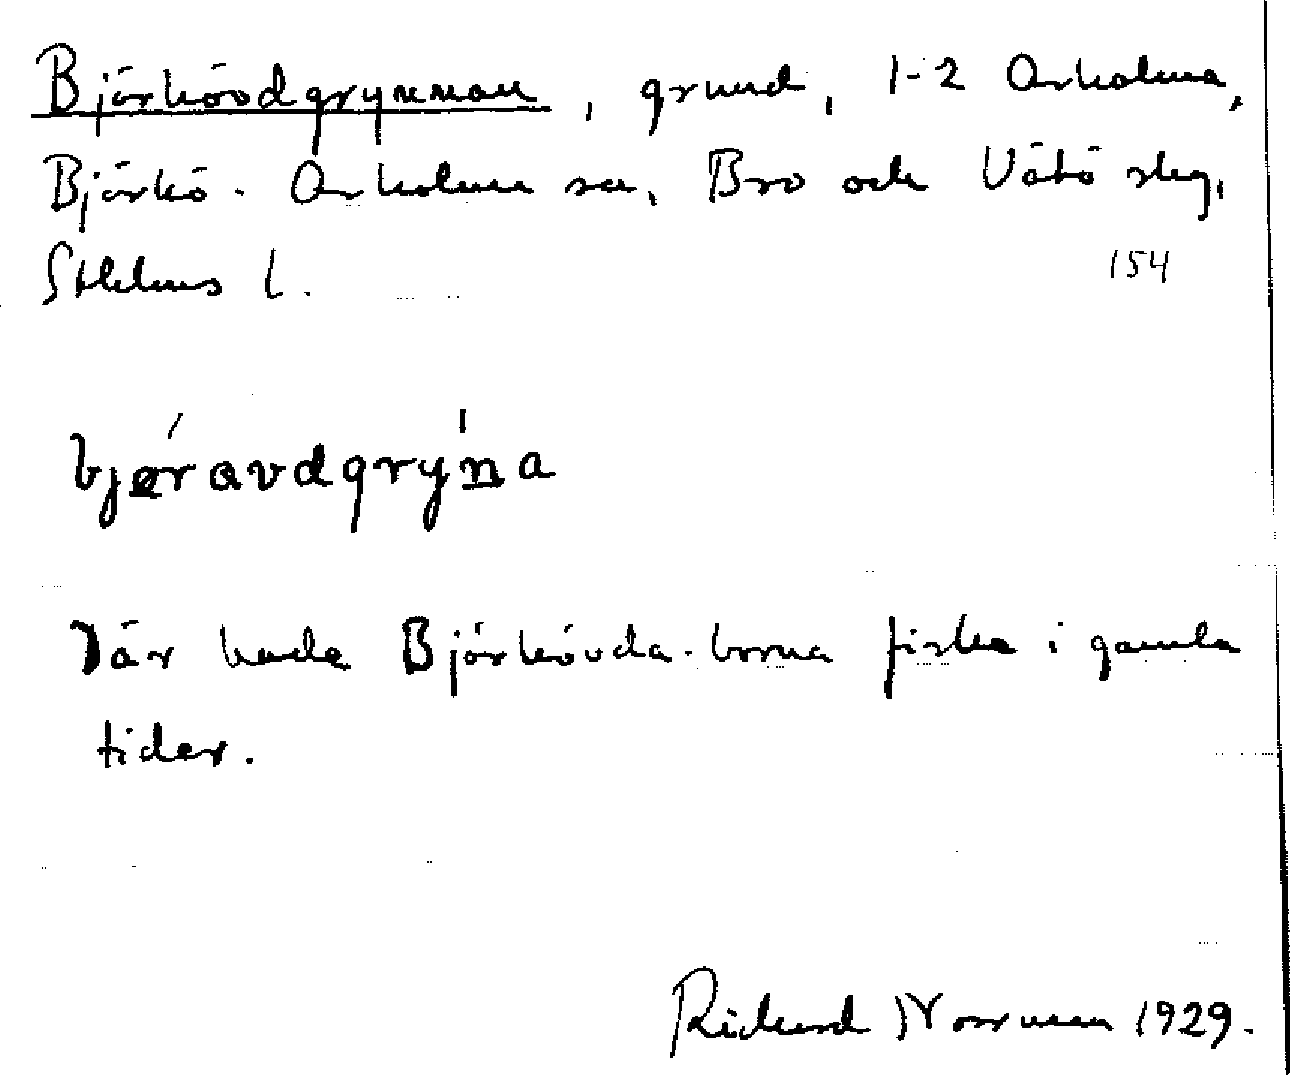 Björköodgrynnan, grund, 1-2 Arholma,
Björkö-Arholma sn, Bro och Vätö slg,
Sthlms l. 154
bjæravdgrýna
Där hade Björkövda-borna fiske i gamla
tider.
Rickard Norrman 1929.